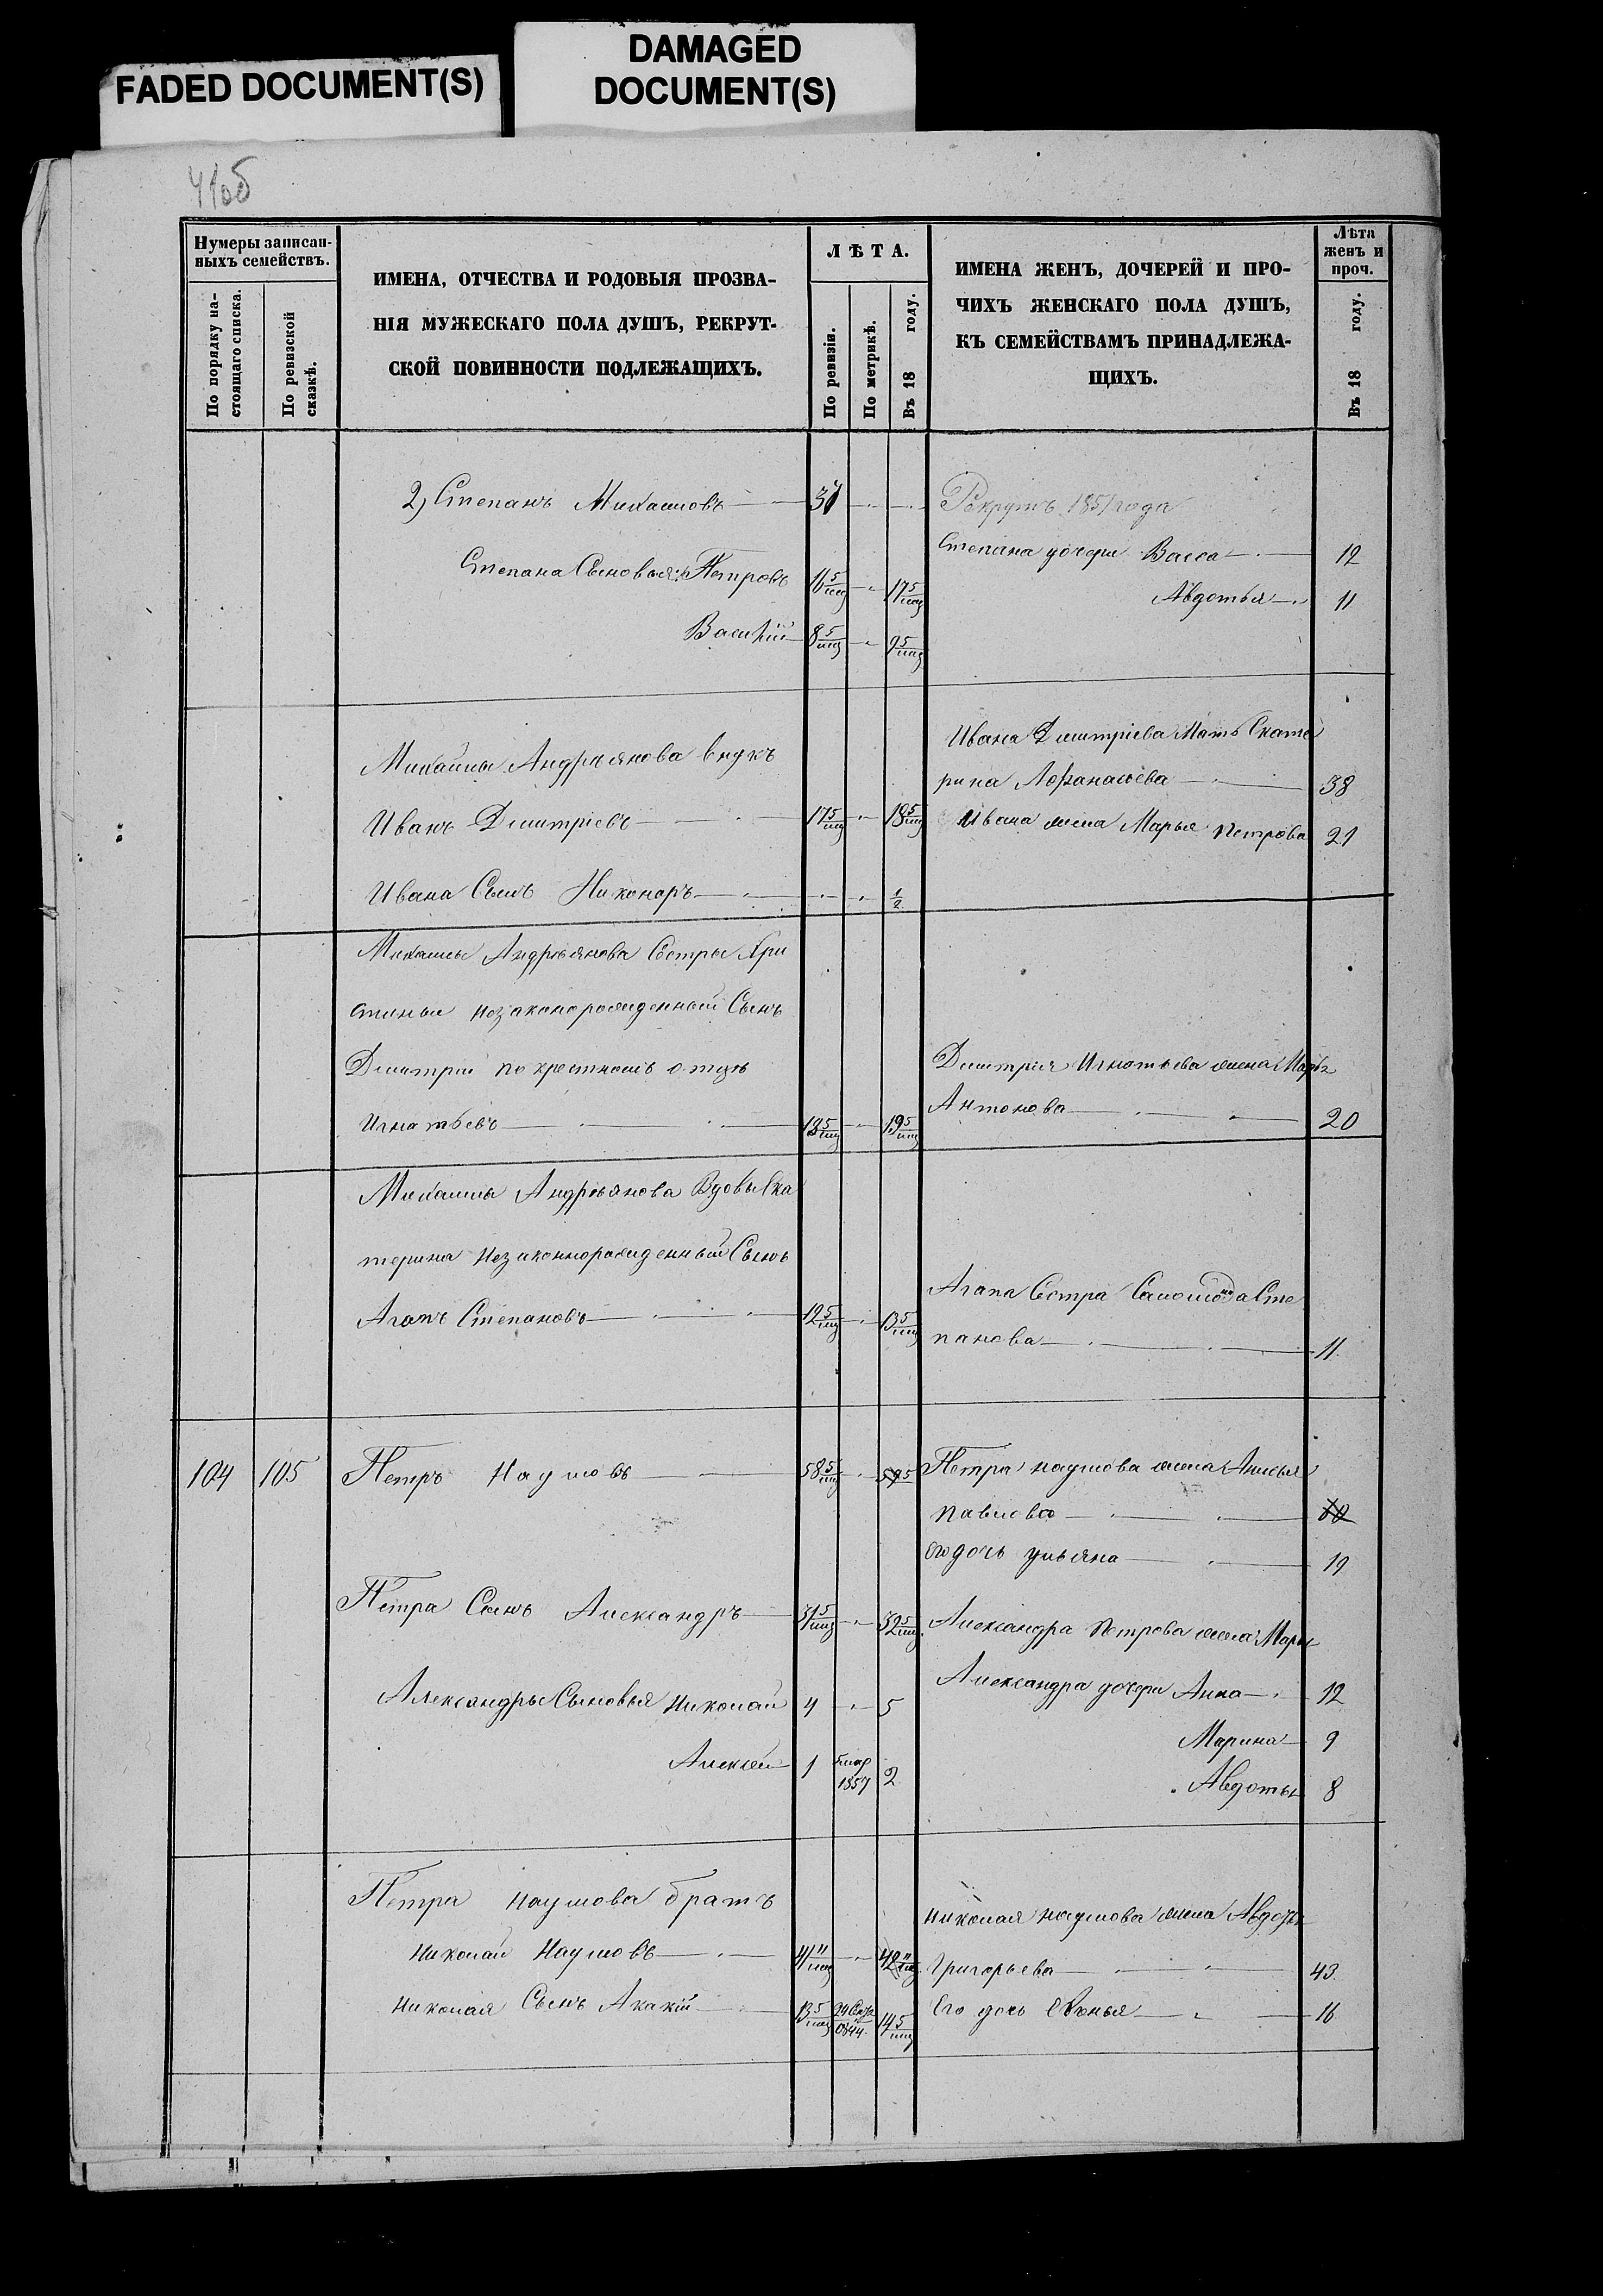 FADED DOCUMENT(S)
DAMAGED
DOCUMENT(S)
41об
Нумеры записан-
ныхъ семействъ.
По порядку на-
стоящаго списка.
По ревизской
сказкѣ.
ИМЕНА, ОТЧЕСТВА И РОДОВЫЯ ПРОЗВА-
НІЯ МУЖЕСКАГО ПОЛА ДУШЪ, РЕКРУТ-
СКОЙ ПОВИННОСТИ ПОДЛЕЖАЩИХЪ.
ЛѢТА.
По ревизіи.
По метрикѣ.
Въ 18 году.
ИМЕНА ЖЕНЪ, ДОЧЕРЕЙ И ПРО-
ЧИХЪ ЖЕНСКАГО ПОЛА ДУШЪ,
КЪ СЕМЕЙСТВАМЪ ПРИНАДЛЕЖА-
ЩИХЪ.
Лѣта
женъ и
проч.
Въ 18 году.
2) Степанъ Михаиловъ Рекрутъ 1851 года
Степана дочери Васса 12
Степана Сыновья: Петръ 16 5/мц 17 5/мц
Авдотья 11
Василій 8 5/мц 9 5/мц
Ивана Дмитріева Мать Екате
Михайлы Андреянова внукъ
рина Афанасьева 38
Иванъ Дмитріевъ 17 5/мц 18 5/мц Ивана жена Марья Петрова 21
Ивана Сынъ Никоноръ 1/2
Михаилы Андреянова Сестры Хри
стиньи незаконорожденный Сынъ
Дмитрій по крестномъ отцѣ Дмитрія Игнатьева жена Марья
Игнатьевъ 18 5/мц 19 5/мц Антонова 20
Михаилы Андреянова Вдовы Ека
терина Незаконнорожденный Сынъ
Агапа Сестра Соломонида Сте
Агапъ Степановъ 12 5/мц 13 5/мц
панова 11
104 105 Петръ Наумовъ 58 5/мц 59 5 Петра Наумова жена Анисья
Павлова
Его дочь Ульяна 19
Петра Сынъ Александръ 31 5/мц 32 5/мц Александра Петрова жена Марья
Александры Сыновья Николай 4 5 Александра дочери Анна 12
Марина 9
Алексѣй 1 1857 2
Авдотья 8
Петра Наумова братъ Николая Наумова жена Авдотья
Николай Наумовъ 41 11/мц 42 11/мц Григорьева 43
Николая Сынъ Акакій 13 5/мц 14 5/мц Его дочь 16